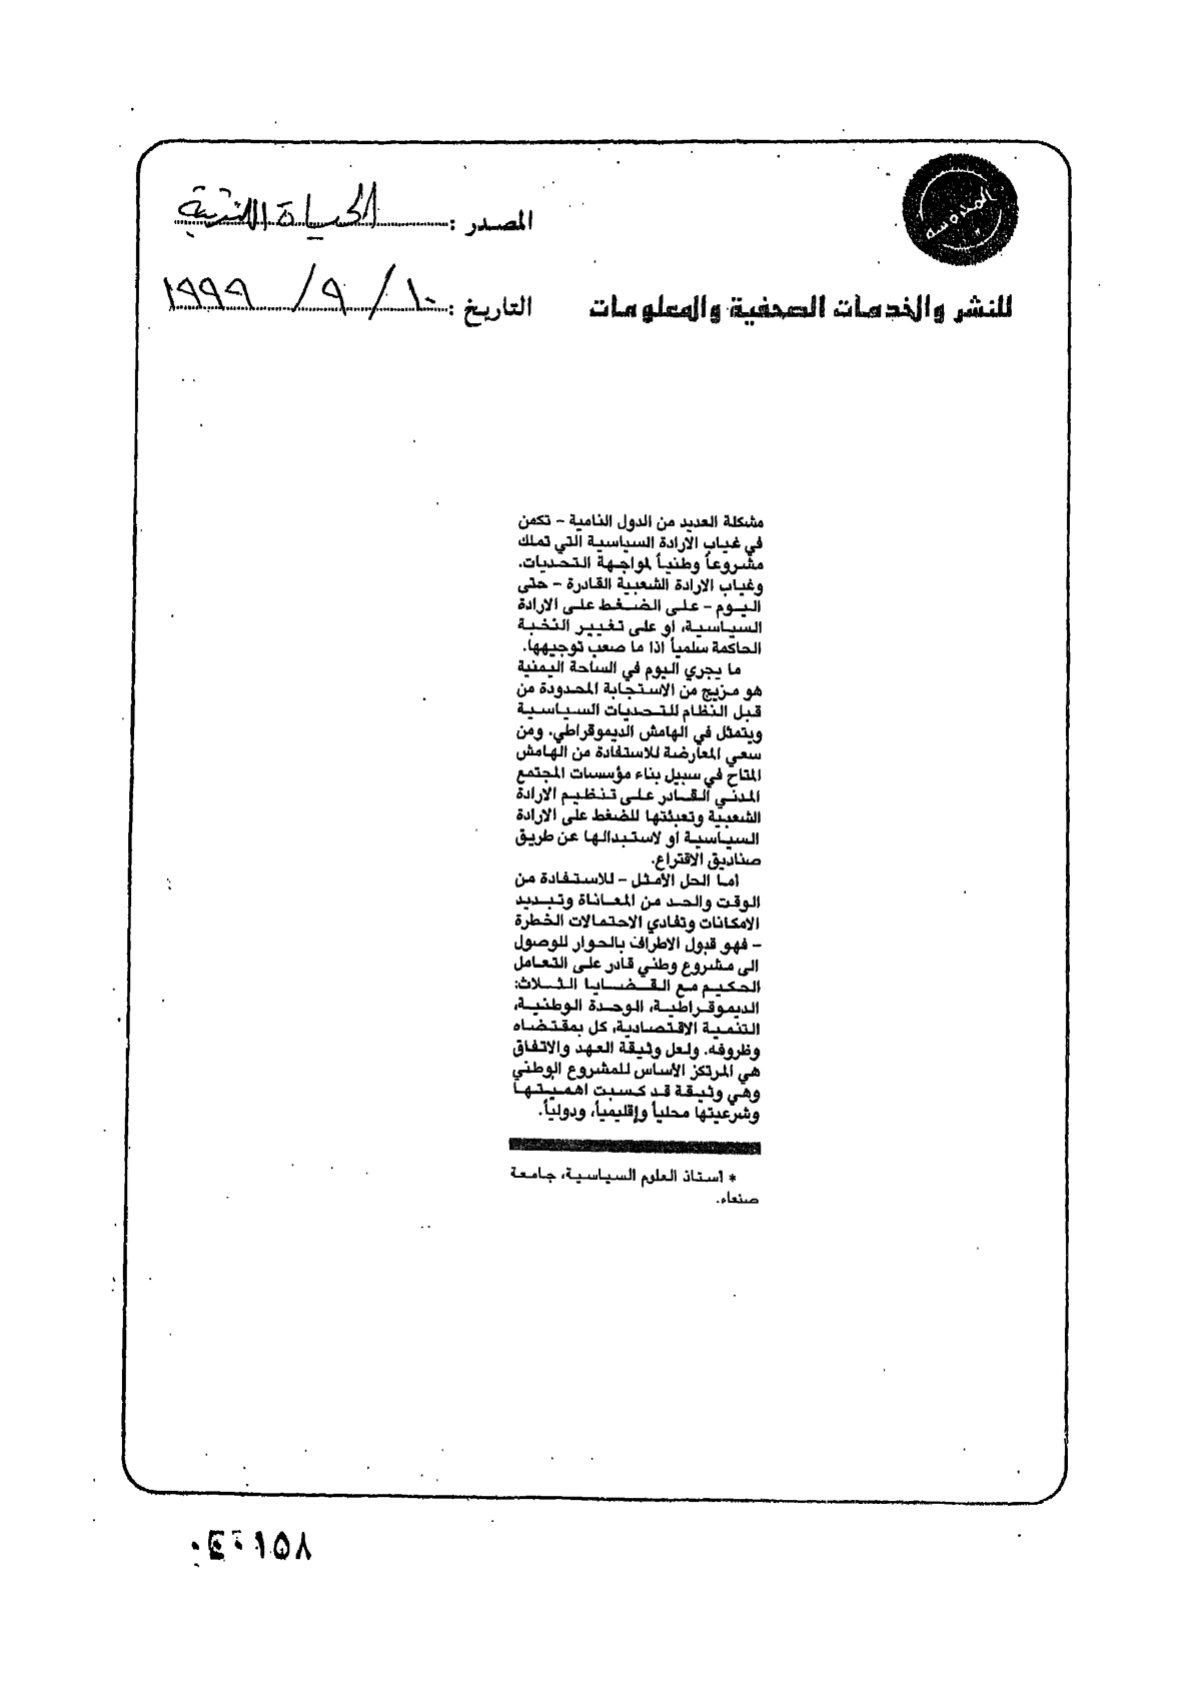 المحروسة
المصدر : الحياة اللندنية
للنشر والخدمات الصحفية والمعلومات
التاريخ : ١٠ / ٩ / ١٩٩٩
مشكلة العديد من الدول النامية - تكمن
في غياب الارادة السياسية التي تملك
مشروعاً وطنياً لمواجهة التحديات.
وغياب الارادة الشعبية القادرة - حتى
اليوم - على الضغط على الارادة
السياسية، او على تغيير النخبة
الحاكمة سلمياً اذا ما صعب توجيهها.
ما يجري اليوم في الساحة اليمنية
هو مزيج من الاستجابة المحدودة من
قبل النظام للتحديات السياسية
ويتمثل في الهامش الديموقراطي. ومن
سعي المعارضة للاستفادة من الهامش
المتاح في سبيل بناء مؤسسات المجتمع
المدني القادر على تنظيم الارادة
الشعبية وتعبئتها للضغط على الارادة
السياسية او لاستبدالها عن طريق
صناديق الاقتراع.
أما الحل الأمثل - للاستفادة من
الوقت والحد من المعاناة وتبديد
الامكانات وتفادي الاحتمالات الخطرة
- فهو قبول الاطراف بالحوار للوصول
الى مشروع وطني قادر على التعامل
الحكيم مع القضايا الثلاث:
الديموقراطية، الوحدة الوطنية،
التنمية الاقتصادية، كل بمقتضاه
وظروفه. ولعل وثيقة العهد والاتفاق
هي المرتكز الأساس للمشروع الوطني
وهي وثيقة قد كسبت اهميتها
وشرعيتها محلياً وإقليمياً، ودولياً.
* أستاذ العلوم السياسية، جامعة
صنعاء.